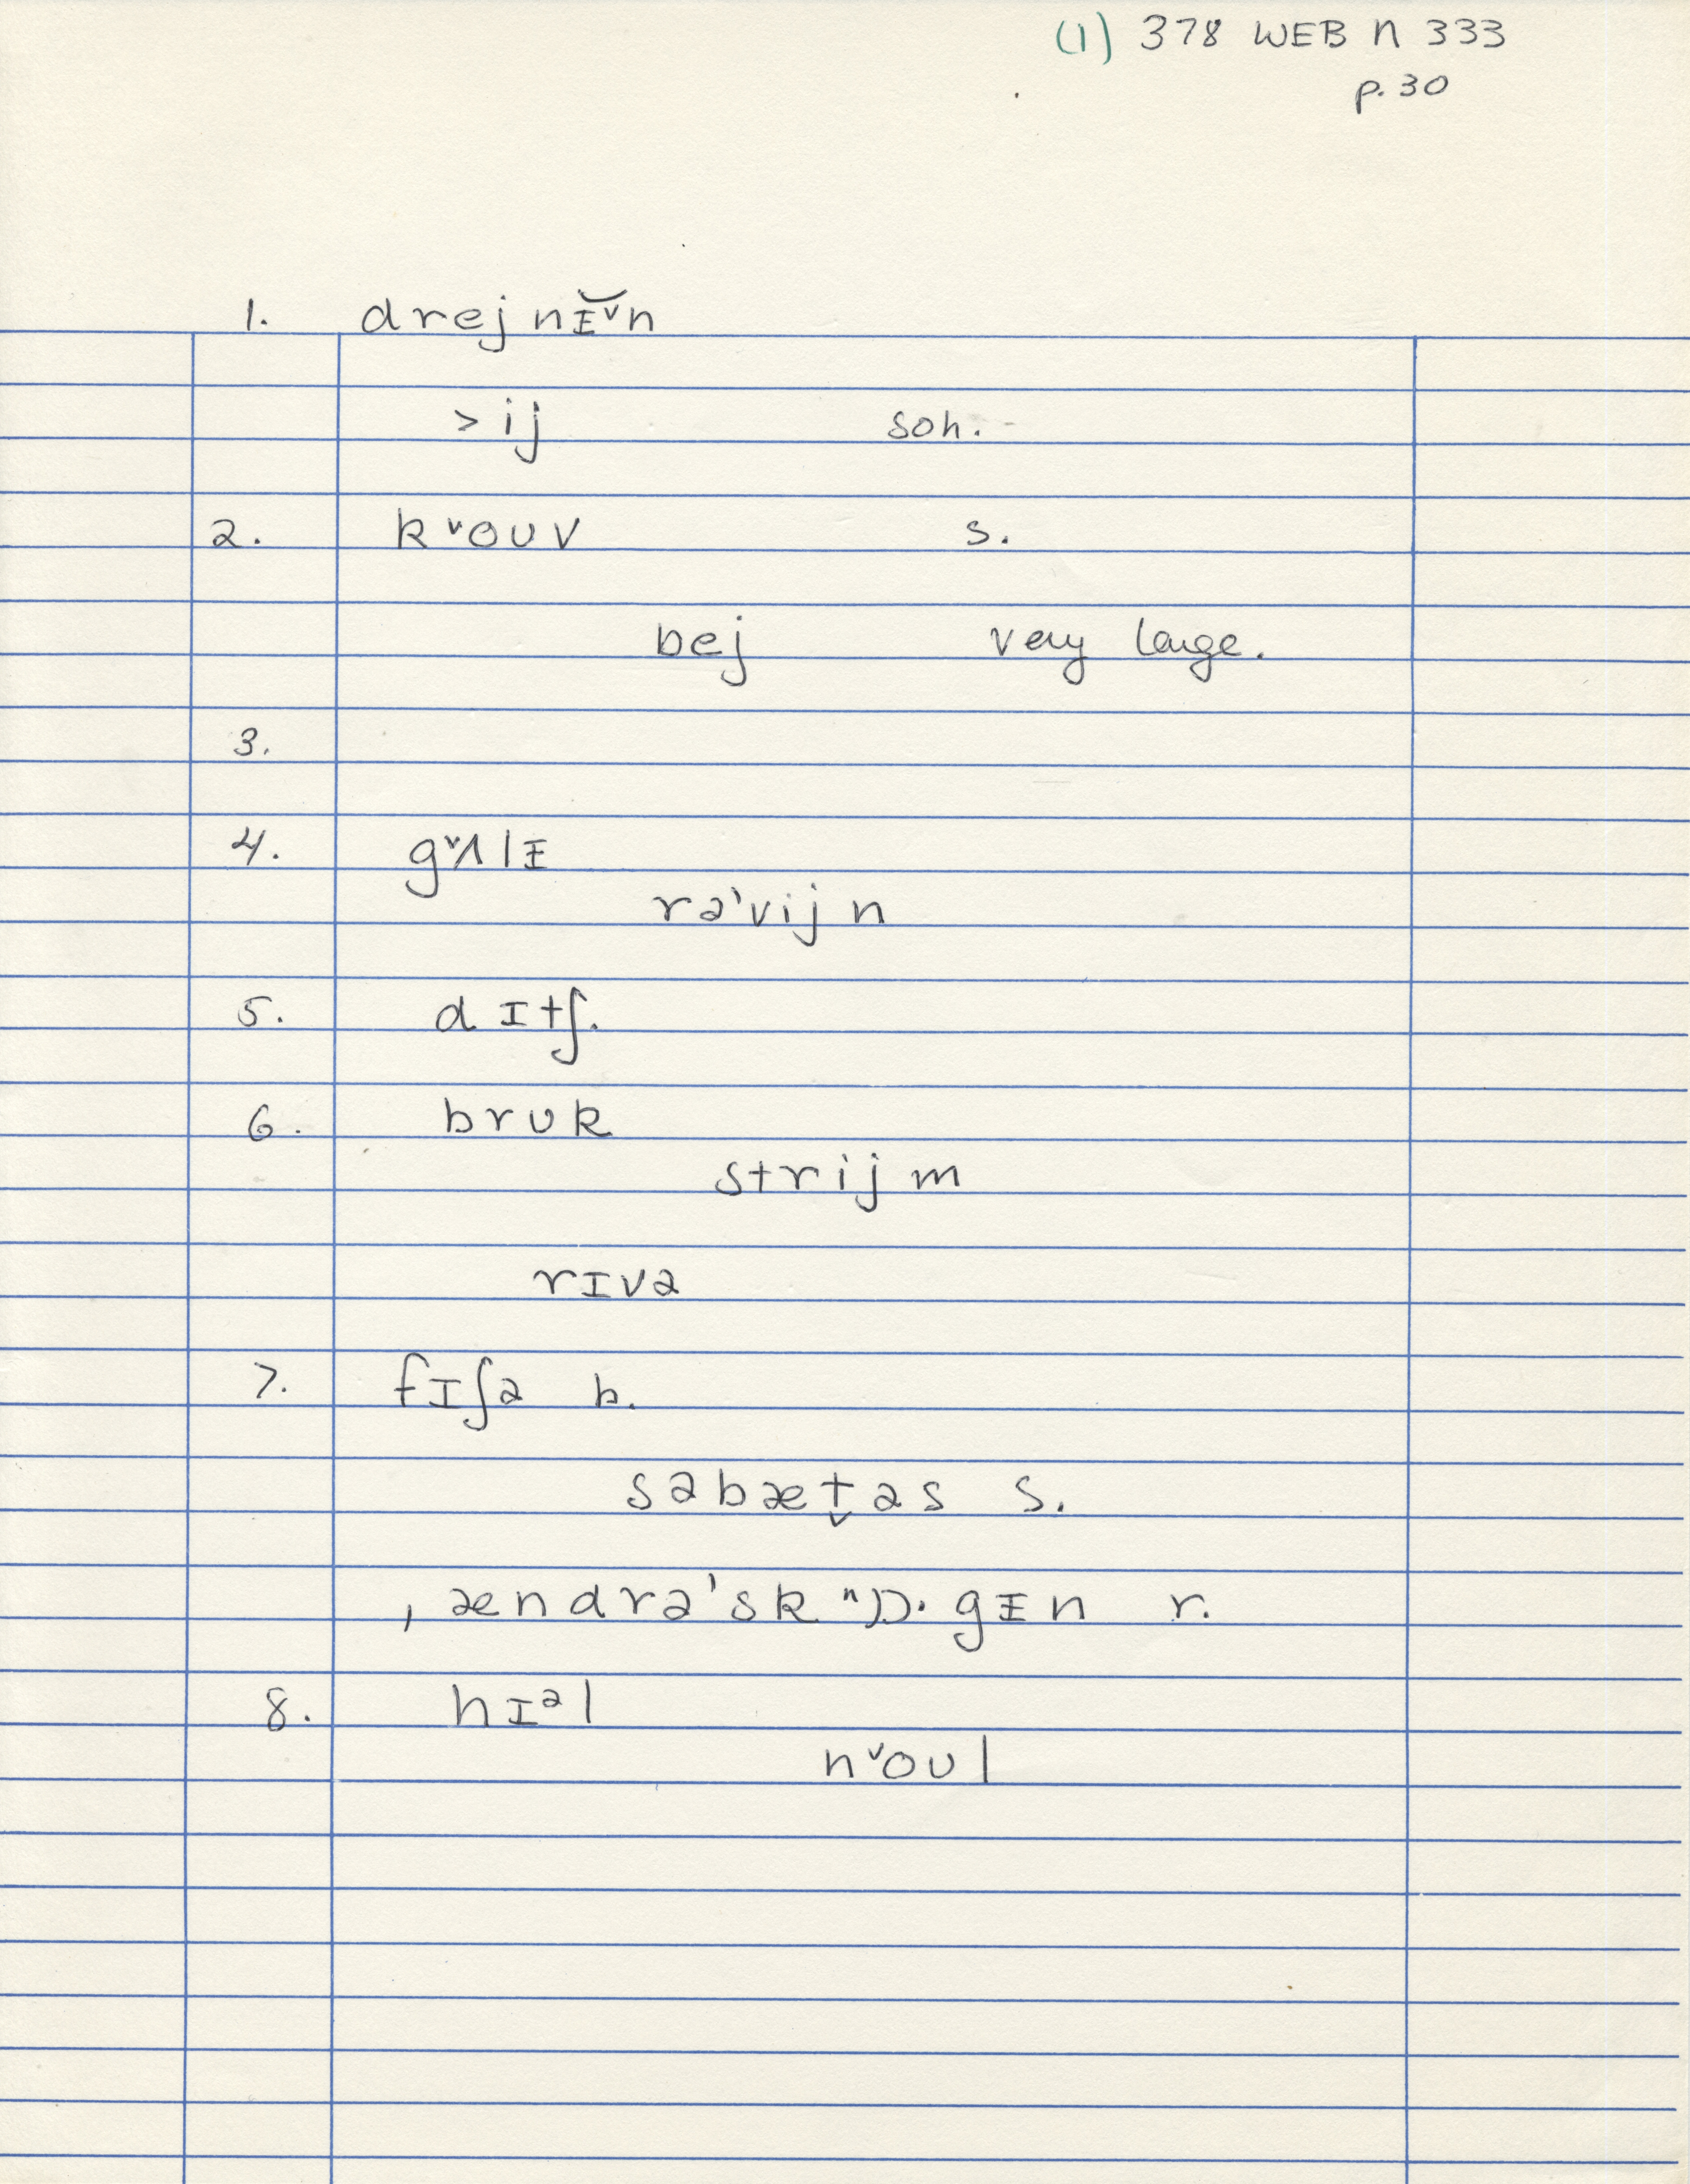 (1) 378 WEB N 333
p. 30
1. drejnɪ̆ᵛn
> ij soh.
2. kᵛoʊv s.
bej very large.
3.
4. gᵛʌlɪ
rə'vijn
5. dɪtʃ.
6. brʊk
strijm
rɪvə
7. fɪʃə b.
səbæt̬əs s.
ˌændrə'skᶺɒ·gɪn r.
8. hɪᵊl
nᵛoʊl